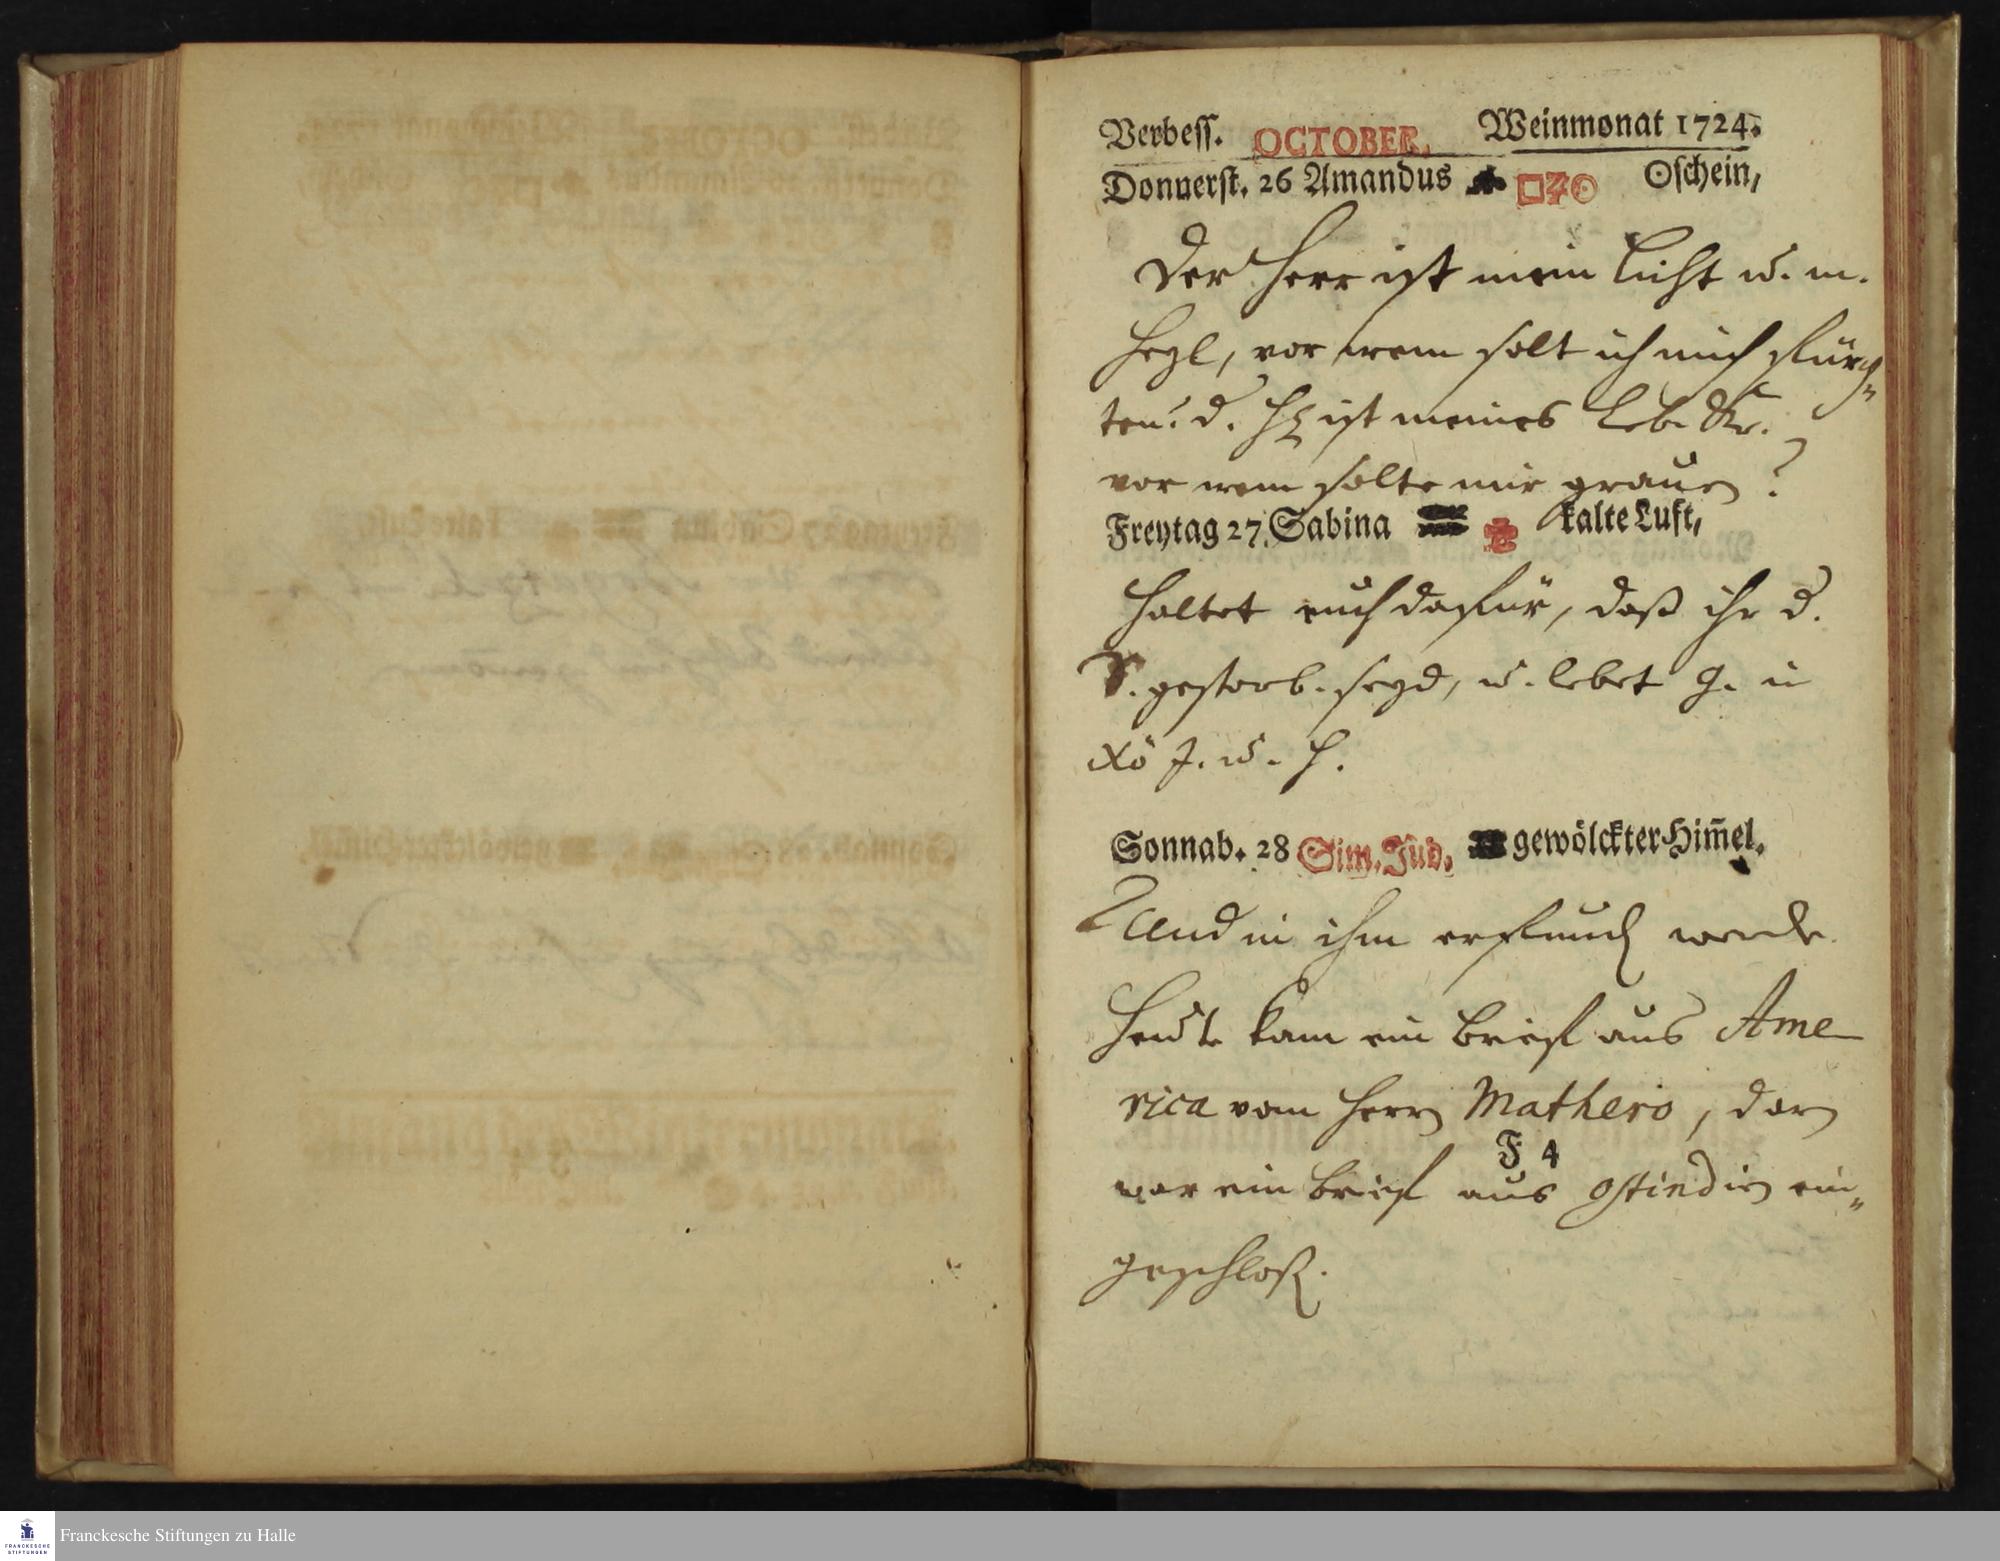 Verbess. OCTOBER. Weinmonat 1724.
Donnerst. 26 Amandus □♃☉ ☉schein,
Der Herr ist mein Licht u. m.
Heyl, vor wem solt ich mich fürch=
ten? d. H ist meines Leb. Kr.
vor wem solte mir grauen?
Freytag 27. Sabina kalte Luft,
Haltet euch dafür, daß ihr d.
S. gestorb. seyd, u. lebet G. in
Xo J. u. H.
Sonnab. 28 Sim. Jud. gewölckter Him̄el.
Und in ihm erfund werde.
Heute kam ein Brief aus Ame-
rica vom Herrn Mathero, darin
F 4
war ein Brief aus Ostindien ein=
geschloß.
Franckesche Stiftungen zu Halle
FRANCKESCHE
STIFTUNGEN